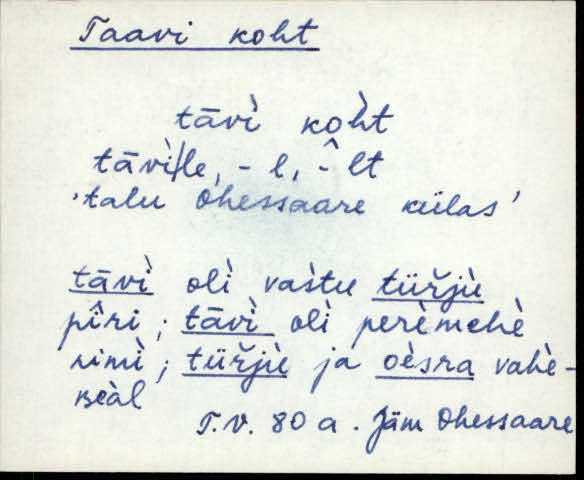 Taavi koht
tāvì kòht
tāvì|le, -l, -̂lt
'talu Ohessaare külas'
tāvì olì vastu türžjù
pîri; tāvì olì perèmehè
nimì; türžjù ja oèsra vahè-
beàl
T.V. 80 a. Jäm Ohessaare